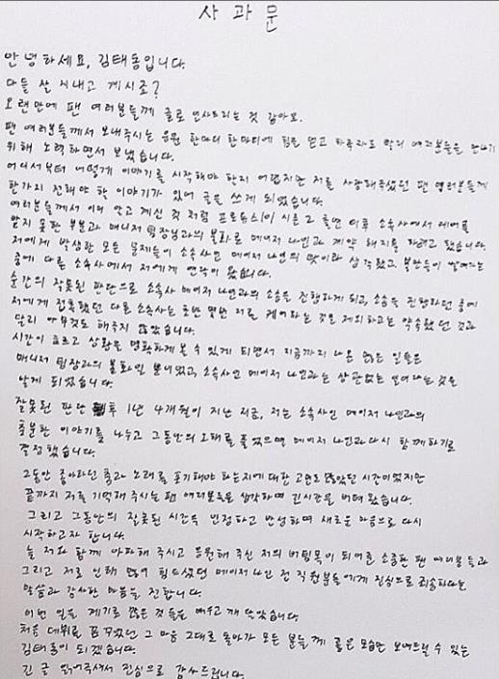 사 과 문
안녕하세요, 김태동입니다.
다들 잘 지내고 계시죠?
오랜만에 팬 여러분들께 글로 인사드리는 것 같아요.
팬 여러분들께서 보내주시는 응원 한마디 한마디에 힘을 얻고 하루라도 빨리 여러분들을 만나기
위해 노력하면서 보냈습니다.
어디서부터 어떻게 이야기를 시작해야 할지 어렵지만 저를 사랑해주셨던 팬 여러분들께
한가지 전해야 할 이야기가 있어 글을 쓰게 되었습니다.
여러분들께서 이미 알고 계신 것 처럼 프로듀스101 시즌2 출연 이후 소속사에서 케어를
받지 못한 부분과 매니저 팀장님과의 불화로 메이저 나인과 계약 해지를 하려고 했습니다.
저에게 발생한 모든 문제들이 소속사인 메이저 나인의 탓이라 생각했고, 불만들이 쌓여가는
중에 다른 소속사에서 저에게 연락이 왔습니다.
순간의 잘못된 판단으로 소속사 메이저 나인과의 소송을 진행하게 되고, 소송을 진행하던 중에
저에게 접촉했던 다른 소속사는 초반 몇번 저를 케어하는 것을 제외하고는 약속했던 것과
달리 아무것도 해주지 않았습니다.
시간이 흐르고 상황을 명확하게 볼 수 있게 되면서 지금까지 나온 많은 일들은
매니저 팀장과의 불화일 뿐이었고, 소속사인 메이저 나인과는 상관없는 일이라는 것을
알게 되었습니다.
잘못된 판단 후 1년 4개월이 지난 지금, 저는 소속사인 메이저 나인과의
충분한 이야기를 나누고 그동안의 오해를 풀었으며 메이저 나인과 다시 함께하기로
결정했습니다.
그동안 좋아하던 춤과 노래를 포기해야 하는지에 대한 고민도 많았던 시간이었지만
끝까지 저를 기억해 주시는 팬 여러분들을 생각하며 긴 시간을 버텨왔습니다.
그리고 그동안의 잘못된 시간을 인정하고 반성하며 새로운 마음으로 다시
시작하고자 합니다.
늘 저와 함께 아파해 주시고 응원해 주신 저의 버팀목이 되어준 소중한 팬 여러분들과
그리고 저로 인해 많이 힘드셨던 메이저 나인 전 직원분들에게 진심으로 죄송하다는
말씀과 감사한 마음을 전합니다.
이번 일을 계기로 많은 것들을 배우고 깨달았습니다.
처음 데뷔를 꿈꾸었던 그 마음 그대로 돌아가 모든 분들께 좋은 모습만 보여드릴 수 있는
김태동이 되겠습니다.
긴 글 읽어주셔서 진심으로 감사드립니다.